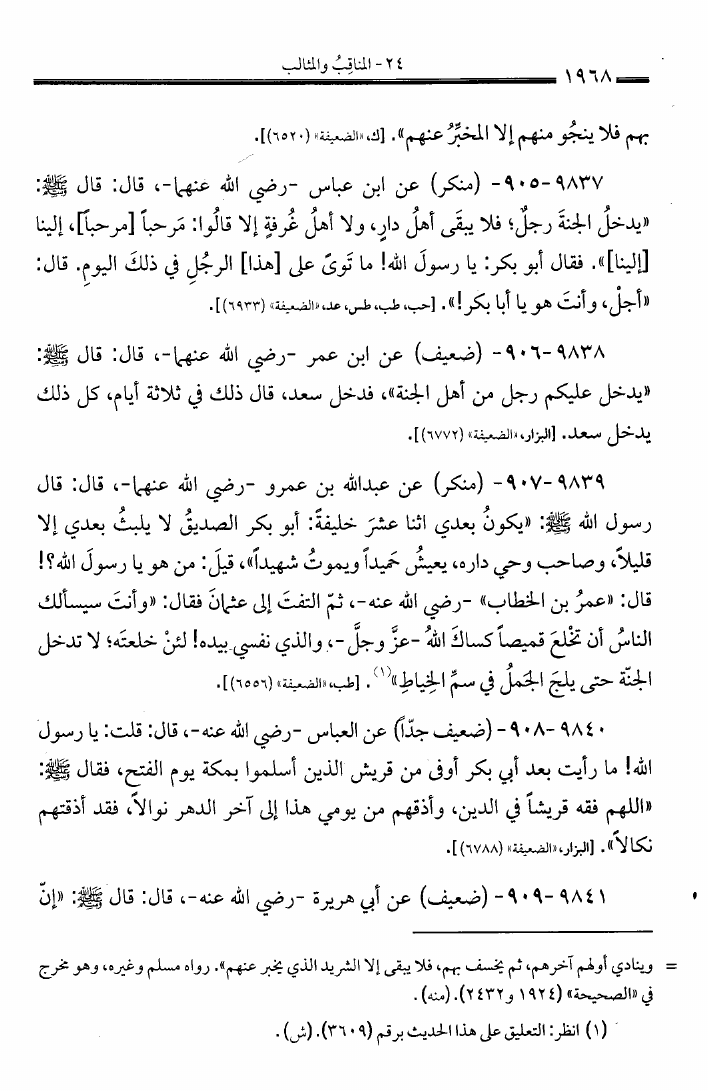 ٢٤- المناقِبُ والمثالب
١٩٦٨
بهم فلا ينجُو منهم إلا المخبِّرُ عنهم». [ك، «الضعيفة» (٦٥٢٠)].
٩٨٣٧-٩٠٥- (منكر) عن ابن عباس -رضي الله عنهما-، قال: قال ﷺ:
«يدخلُ الجنةَ رجلٌ؛ فلا يبقَى أهلُ دارٍ، ولا أهلُ غُرفةٍ إلا قالُوا: مَرحباً [مرحباً]، إلينا
[إلينا]». فقال أبو بكر: يا رسولَ الله! ما تَوىً على [هذا] الرجُلِ في ذلكَ اليومِ. قال:
«أجلْ، وأنتَ هو يا أبا بكر!». [حب، طب، طس، عد، «الضعيفة» (٦٩٣٣)].
٩٨٣٨-٩٠٦- (ضعيف) عن ابن عمر -رضي الله عنهما-، قال: قال ﷺ:
«يدخل عليكم رجل من أهل الجنة»، فدخل سعد، قال ذلك في ثلاثة أيام، كل ذلك
يدخل سعد. [البزار، «الضعيفة» (٦٧٧٢)].
٩٨٣٩-٩٠٧- (منكر) عن عبدالله بن عمرو -رضي الله عنهما-، قال: قال
رسول الله ﷺ: «يكونُ بعدي اثنا عشرَ خليفةً: أبو بكر الصديقُ لا يلبثُ بعدي إلا
قليلاً، وصاحب وحي داره، يعيشُ حَميداً ويموتُ شهيداً»، قيلَ: من هو يا رسولَ الله؟!
قال: «عمرُ بن الخطاب» -رضي الله عنه-، ثمّ التفتَ إلى عثمانَ فقال: «وأنتَ سيسألك
الناسُ أن تخْلعَ قميصاً كساكَ اللهُ -عزَّ وجلَّ-، والذي نفسي بيده! لئنْ خلعتَه؛ لا تدخل
الجنّة حتى يلجَ الجَملُ في سمِّ الخِياطِ»(١). [طب، «الضعيفة» (٦٥٥٦)].
٩٨٤٠-٩٠٨- (ضعيف جدّاً) عن العباس -رضي الله عنه-، قال: قلت: يا رسول
الله! ما رأيت بعد أبي بكر أوفى من قريش الذين أسلموا بمكة يوم الفتح، فقال ﷺ:
«اللهم فقه قريشاً في الدين، وأذقهم من يومي هذا إلى آخر الدهر نوالاً، فقد أذقتهم
نكالاً». [البزار، «الضعيفة» (٦٧٨٨)].
٩٨٤١-٩٠٩- (ضعيف) عن أبي هريرة -رضي الله عنه-، قال: قال ﷺ: «إنّ
= وينادي أولهم آخرهم، ثم يخسف بهم، فلا يبقى إلا الشريد الذي يخبر عنهم». رواه مسلم وغيره، وهو مخرج
في «الصحيحة» (١٩٢٤ و٢٤٣٢). (منه).
(١) انظر: التعليق على هذا الحديث برقم (٣٦٠٩). (ش).